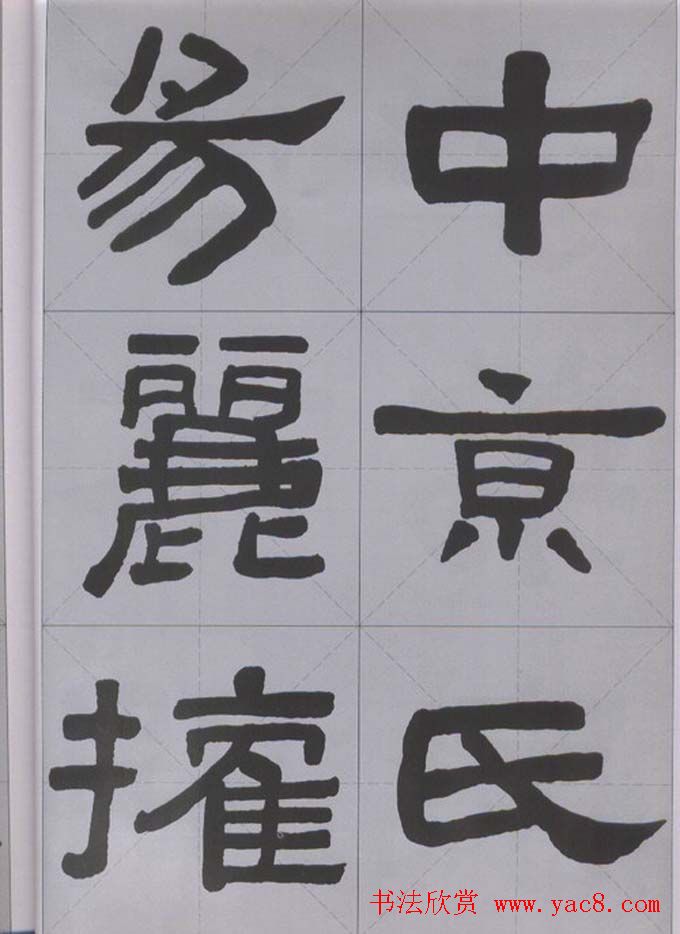 中京氏
易麗權
书法欣赏 www.yac8.com